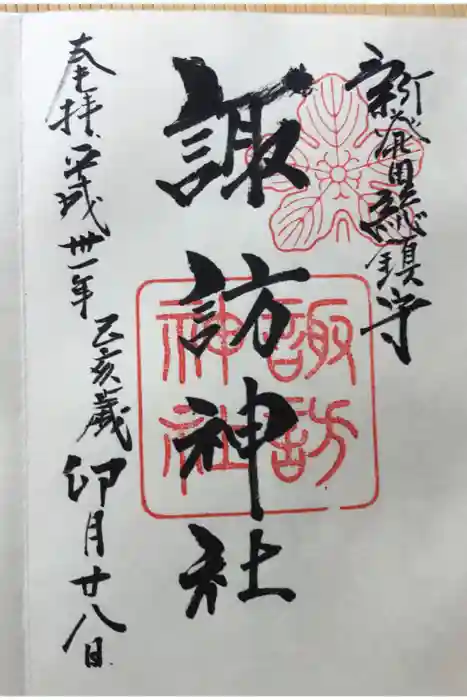 新発田総鎮守
諏訪神社
諏訪
神社
奉拝、平成卅一年
乙亥歳
卯月廿八日